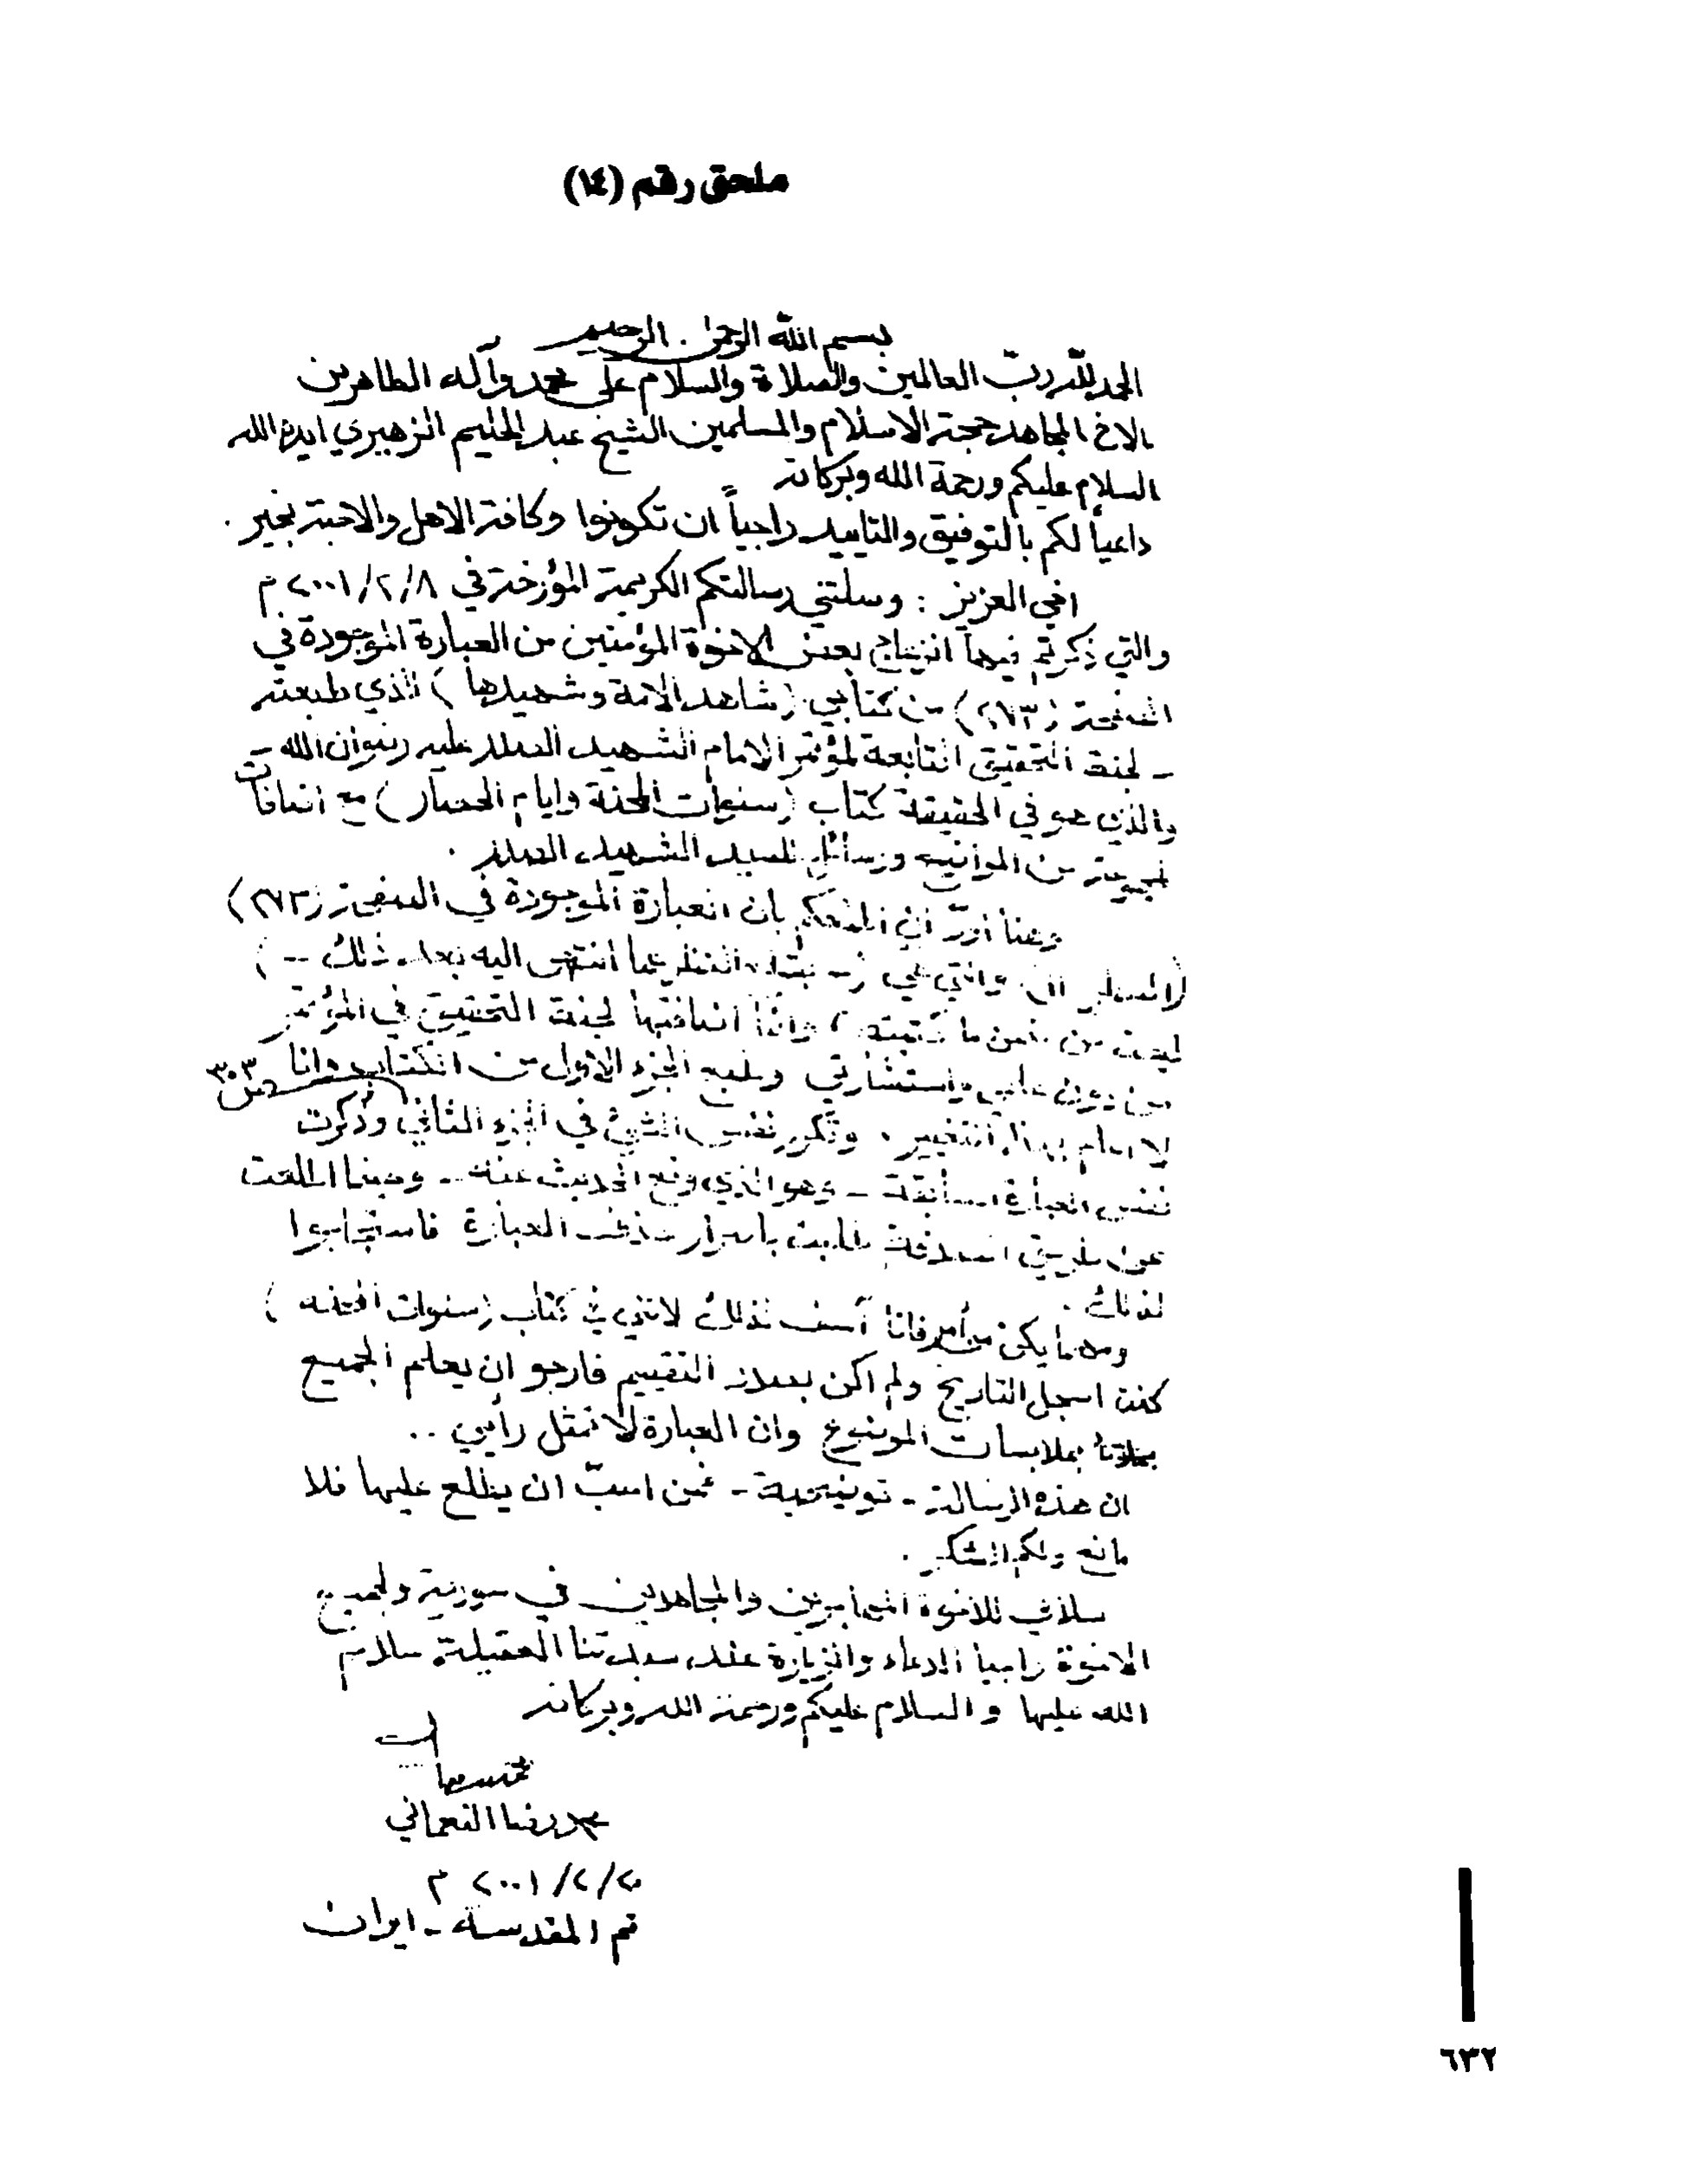 ملحق رقم (١٤)
بسم الله الرحمن الرحيم
الحمد لله رب العالمين والصلاة والسلام على محمد وآله الطاهرين
الاخ المجاهد حجة الاسلام والمسلمين الشيخ عبد الحليم الزهيري ايده الله
السلام عليكم ورحمة الله وبركاته
داعياً لكم بالتوفيق والتاييد راجياً ان تكونوا وكافة الاهل والاحبة بخير .
اخي العزيز : وصلتني رسالتكم الكريمة المؤرخة في ٨/٢/٢٠٠١ م
والتي ذكرتم فيها انزعاج بعض الاخوة المؤمنين من العبارة الموجودة في
الصفحة (٢٧٣) من كتابي (شاهد الامة وشهيدها) الذي طبعته
- لجنة التحقيق التابعة لمؤتمر الامام الشهيد الصدر عليه رضوان الله -
والذي هو في الحقيقة كتاب (سنوات المحنة وايام الحصار) مع اضافات
لمجموعة من المواضيع ورسائل للسيد الشهيد الصدر .
وهنا اودّ ان اعلمكم بان العبارة الموجودة في الصفحة (٢٧٣)
بغض النظر عما انتهى اليه بعد ذلك -- )
ليست من ضمن ما كتبته ، وانما اضافتها لجنة التحقيق في المؤتمر
من دون علمي واستشارتي وطبع الجزء الاول من الكتاب وانا
لا اعلم بهذا التغيير . وتكرر نفس الشيئ في الجزء الثاني وذكرت ص ٣٠٣
نفس العبارة السابقة - وهو الذي وقع الحديث عنه - وحينما اطلعت
عن طريق الصدفة طالبت باصرار حذف العبارة فاستجابوا
لذلك .
ومهما يكن من أمر فانا آسف لذلك لانني في كتاب (سنوات المحنة)
كنت اسجل التاريخ ولم اكن بصدد التقييم فارجو ان يعلم الجميع
بملابسات الموضوع وان العبارة لا تمثل رأيي ..
ان هذه الرسالة - توضيحية - فمن احبّ ان يطلع عليها فلا
مانع ولكم الشكر .
سلامي للاخوة المهاجرين والمجاهدين في سورية ولجميع
الاخوة راجيا الدعاء والزيارة عند سيدتنا العقيلة سلام
الله عليها والسلام عليكم ورحمة الله وبركاته
محمد رضا النعماني
٢٠٠١ م
قم المقدسة - ايران
٦٣٢